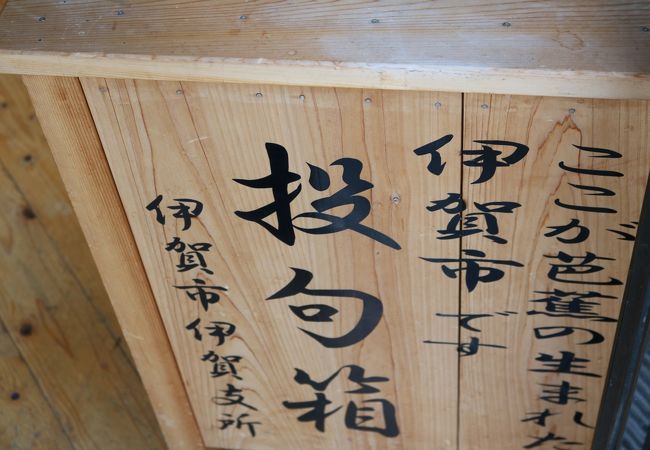 ここが芭蕉の生まれた
伊賀市です
投句箱
伊賀市伊賀支所